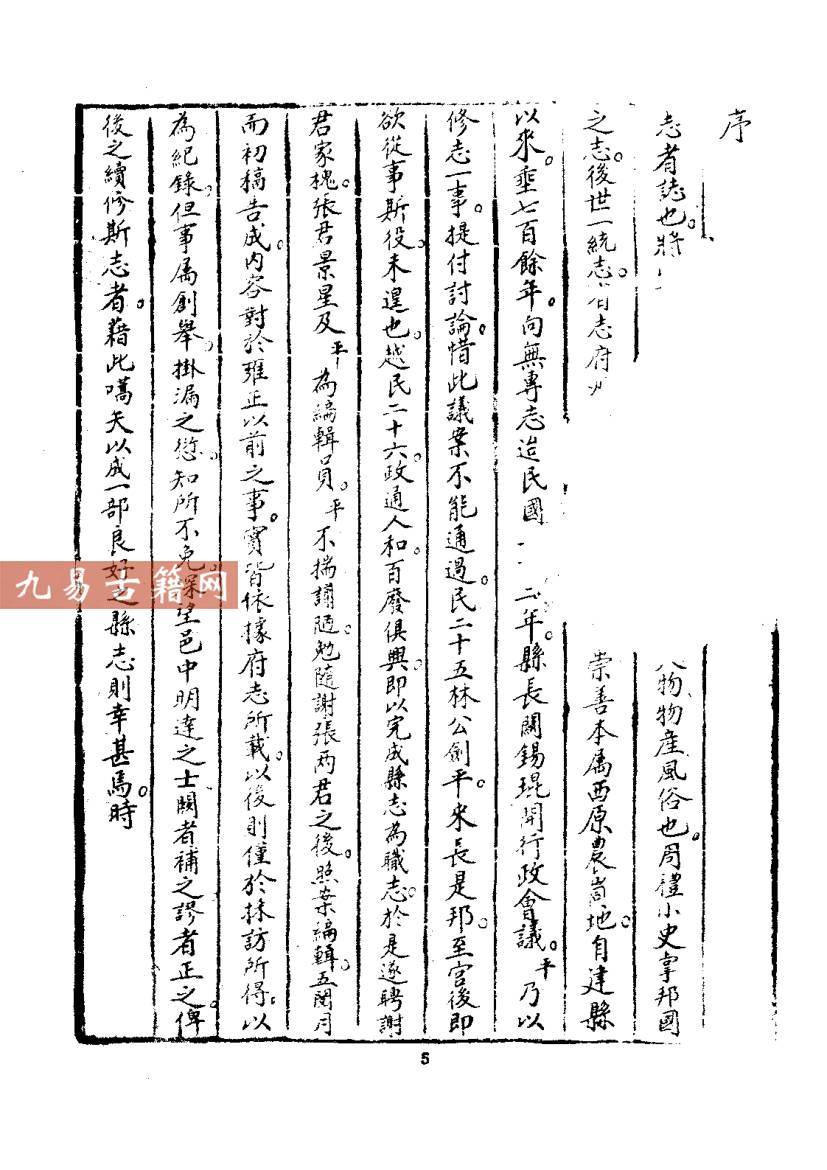 序
志者誌也。將
人物物產風俗也。周禮小史掌邦國
之志。後世一統志。省志府
崇善本属西原農峝地。自建縣
以來。垂七百餘年。向無專志迨民國
二年。縣長關錫琨開行政會議。平乃以
修志一事。提付討論。惜此議案不能通過。民二十五林公劍平。來長是邦。至官後即
欲從事斯役未遑也。越民二十六。政通人和。百廢俱興。即以完成縣志為職志。於是遂聘謝
君家槐。張君景星及平為編輯員。平不揣譾陋。勉隨謝張两君之後。照案編輯。五閱月
而初稿告成。内容對於雍正以前之事。實皆依據府志所載。以後則僅於採訪所得。以
為紀錄。但事属創舉。掛漏之愆。知所不免。深望邑中明達之士闕者補之謬者正之。俾
後之續修斯志者。藉此嚆矢以成一部良好之縣志則幸甚焉。時
九易古籍网
5